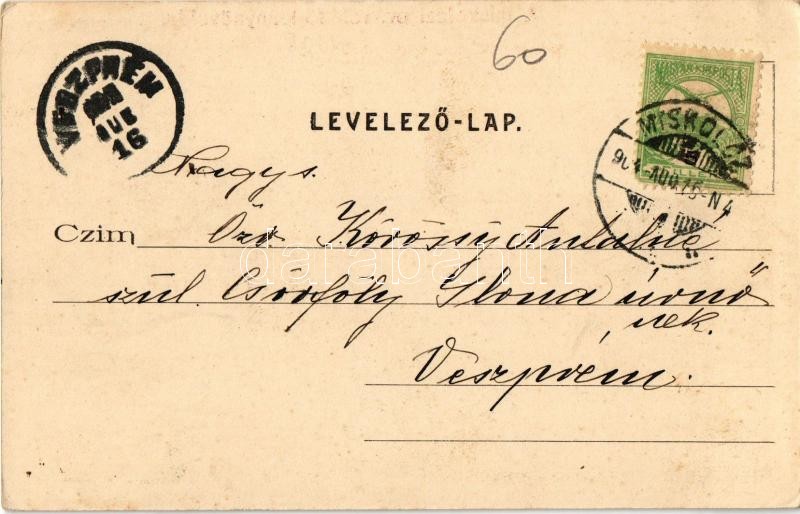 60
VESZPRÉM
AUG
16
MAGYAR KIR. POSTA
MISKOLCZ
904 AUG 15-N4
LEVELEZŐ-LAP.
Nagys.
Czim Özv Kőrössy Antalné
szül. Csórfoly Ilona úrnő
nek.
Veszprém.
darabanth